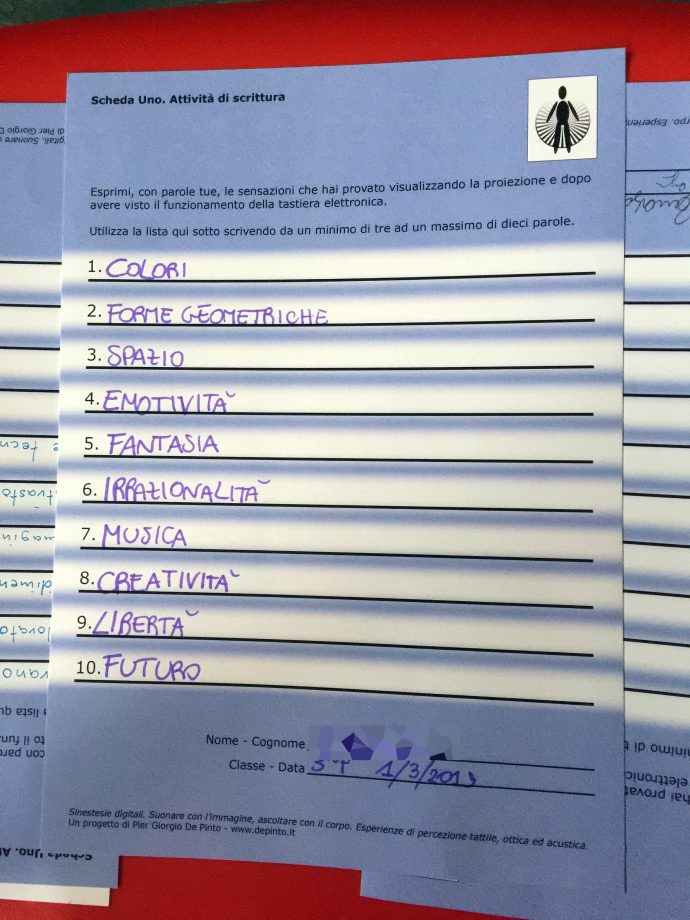 Scheda Uno. Attività di scrittura
Esprimi, con parole tue, le sensazioni che hai provato visualizzando la proiezione e dopo
avere visto il funzionamento della tastiera elettronica.
Utilizza la lista qui sotto scrivendo da un minimo di tre ad un massimo di dieci parole.
1. COLORI
2. FORME GEOMETRICHE
3. SPAZIO
4. EMOTIVITÀ
5. FANTASIA
6. IRRAZIONALITÀ
7. MUSICA
8. CREATIVITÀ
9. LIBERTÀ
10. FUTURO
Nome - Cognome
Classe - Data 1/3/2019
Sinestesie digitali. Suonare con l'immagine, ascoltare con il corpo. Esperienze di percezione tattile, ottica ed acustica.
Un progetto di Pier Giorgio De Pinto - www.depinto.it